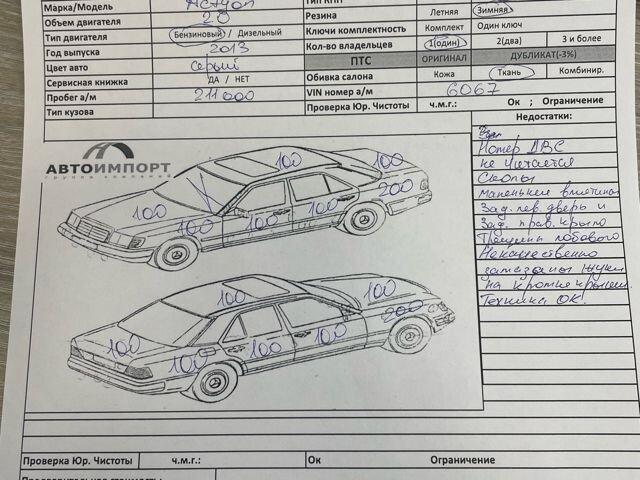 Марка/Модель Actyon
Объем двигателя 2.0
Тип двигателя Бензиновый / Дизельный
Год выпуска 2013
Цвет авто Серый
Сервисная книжка ДА / НЕТ
Пробег а/м 211000
Тип кузова
Резина Летняя Зимняя
Ключи комплектность Комплект Один ключ
Кол-во владельцев 1(один) 2(два) 3 и более
ПТС ОРИГИНАЛ ДУБЛИКАТ(-3%)
Обивка салона Кожа Ткань Комбинир.
VIN номер а/м 6067
Проверка Юр. Чистоты ч.м.г.: Ок ; Ограничение
Недостатки:
Номер ДВС
не читается
Сколы
маленькие вмятины
Зад. лев. дверь и
Зад. прав. крыло
Трещины лобового
Некачественно
на кромке крыльев.
Техника ОК.
АВТОИМПОРТ
группа компаний
100 100
200
100 100 100 100
100 100
200
100 100 100 100
Проверка Юр. Чистоты ч.м.г.: Ок Ограничение